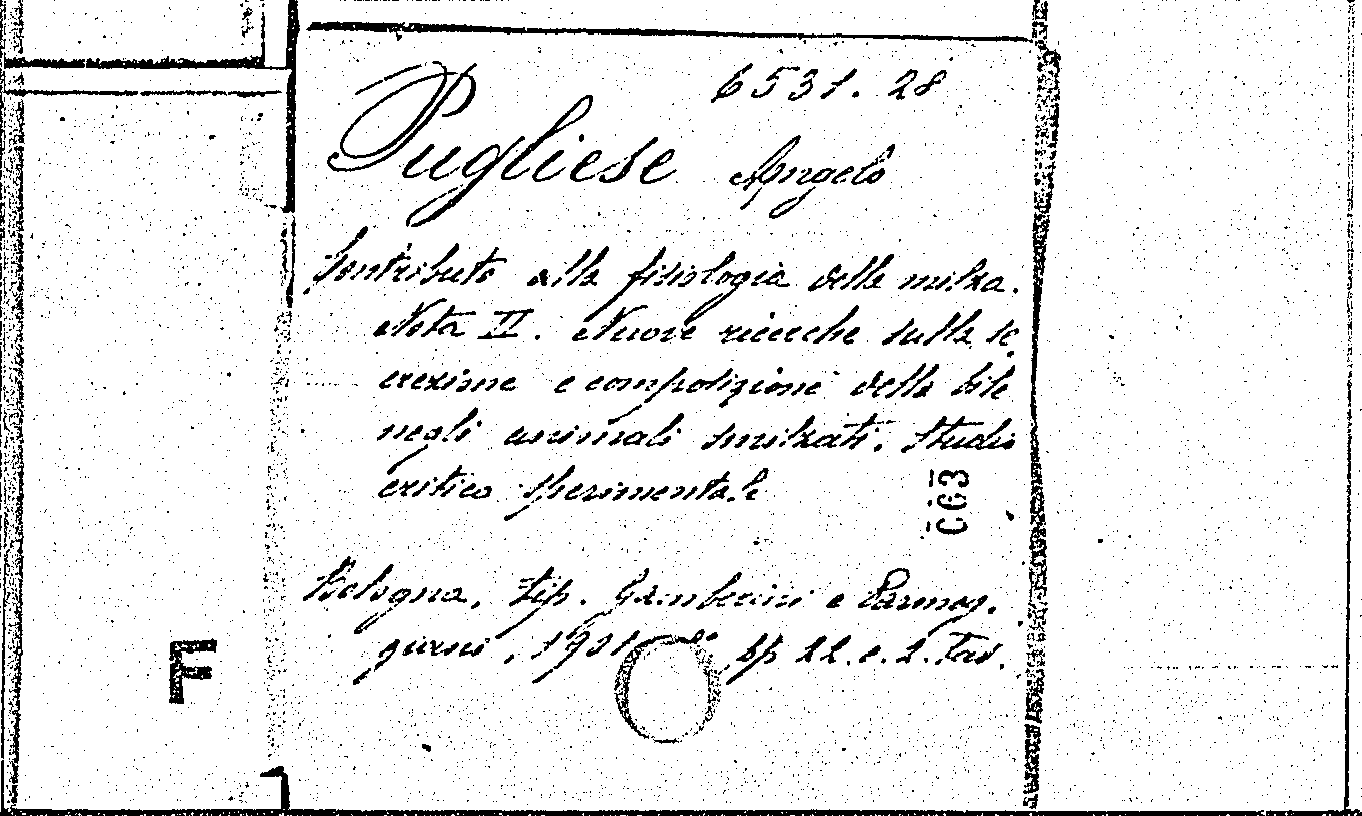 6531. 28
Pugliese Angelo
Contributo alla fisiologia della milza.
Nota II. Nuove ricerche sulla se
crezione e composizione della bile
negli animali smilzati. Studio
critico sperimentale
Bologna, tip. Gamberini e Parmeg.
giani, 1901 8° pp 22. e. 2. tav.
F